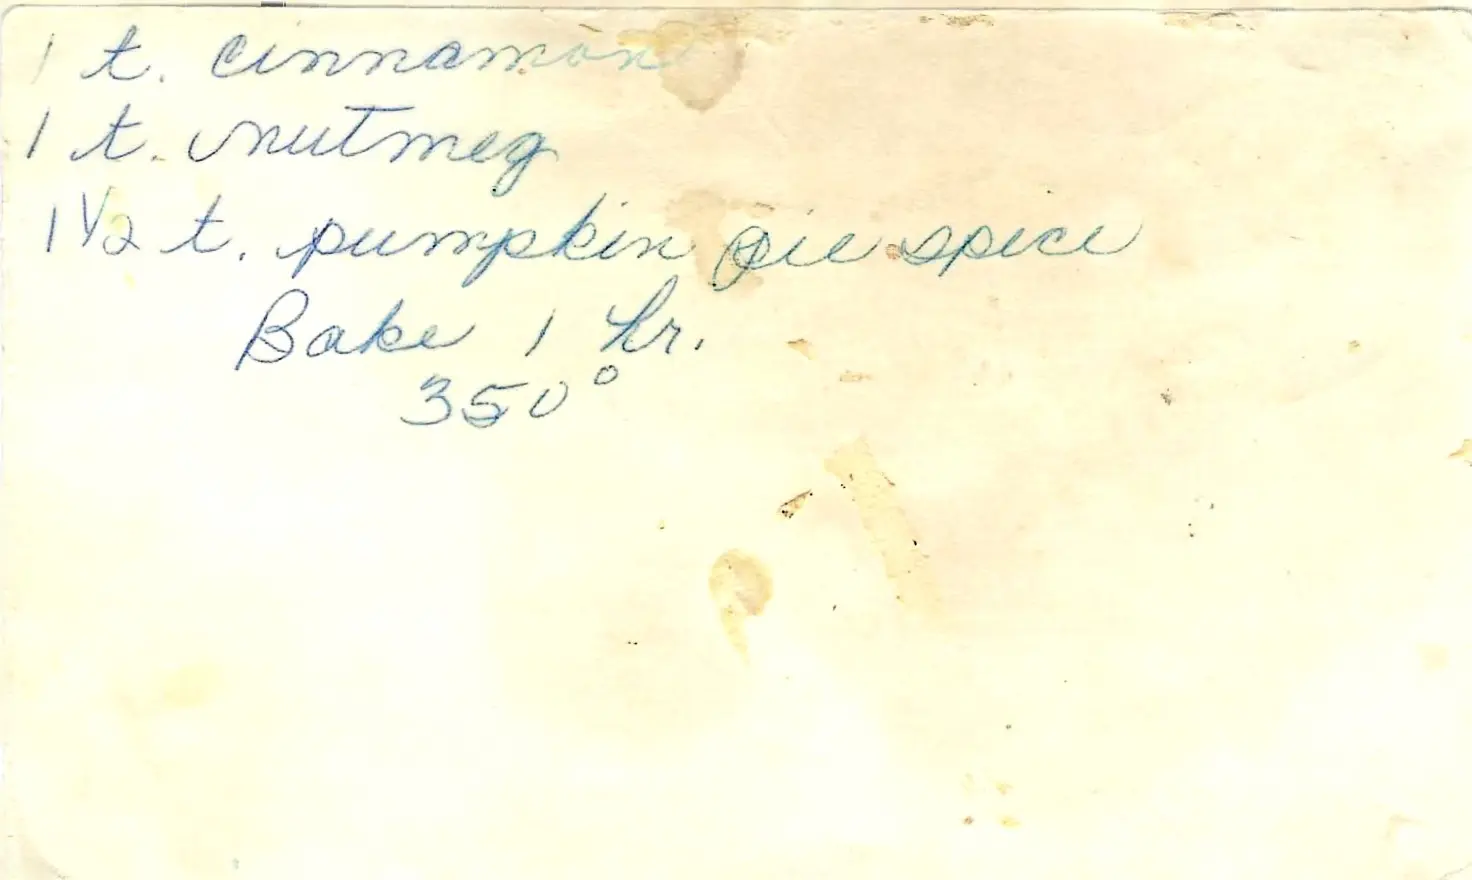 1 t. cinnamon
1 t. nutmeg
1 1/2 t. pumpkin pie spice
Bake 1 hr.
350°